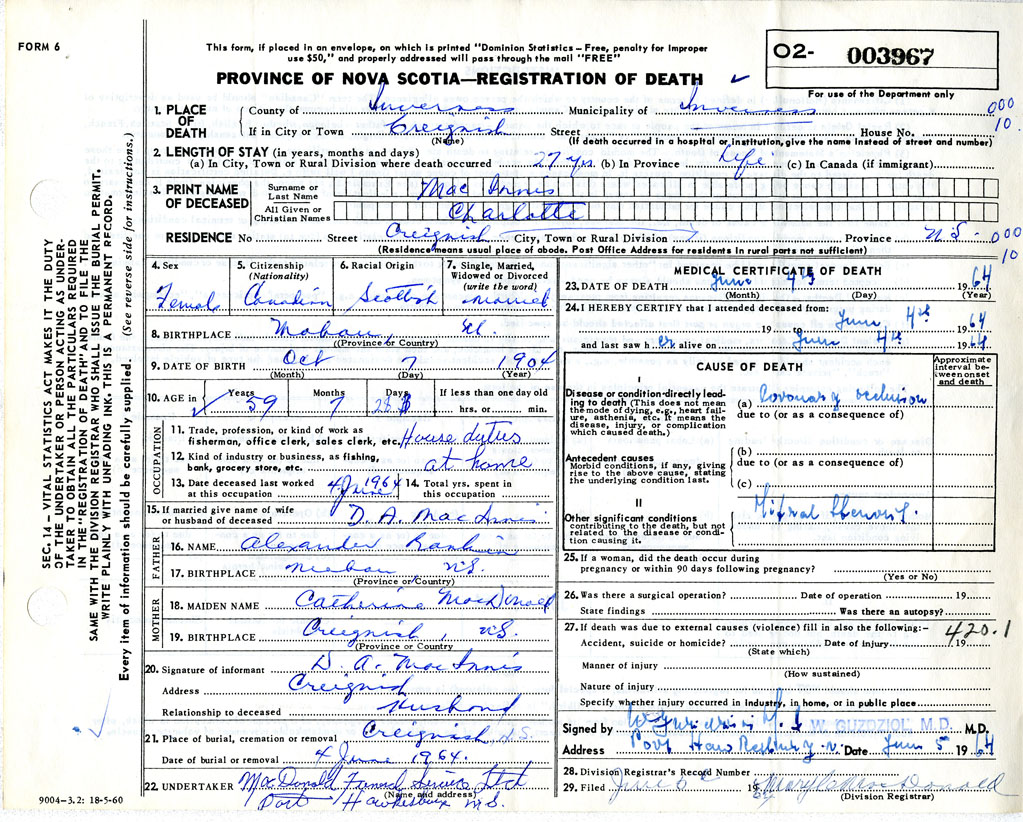 FORM 6
This form, if placed in an envelope, on which is printed "Dominion Statistics – Free, penalty for improper
use $50," and properly addressed will pass through the mail "FREE"
O2- 003967
For use of the Department only
PROVINCE OF NOVA SCOTIA—REGISTRATION OF DEATH ✓
SEC. 14 – VITAL STATISTICS ACT MAKES IT THE DUTY
OF THE UNDERTAKER OR PERSON ACTING AS UNDER-
TAKER TO OBTAIN ALL THE PARTICULARS REQUIRED
IN THE "REGISTRATION OF DEATH" AND TO FILE THE
SAME WITH THE DIVISION REGISTRAR WHO SHALL ISSUE THE BURIAL PERMIT.
WRITE PLAINLY WITH UNFADING INK. THIS IS A PERMANENT RECORD.
Every item of information should be carefully supplied. (See reverse side for instructions.)
1. PLACE OF DEATH
County of Inverness Municipality of Inverness 000
If in City or Town Creignish Street House No. 10
(Name) (If death occurred in a hospital or institution, give the name instead of street and number)
2. LENGTH OF STAY (in years, months and days)
(a) In City, Town or Rural Division where death occurred 27 yrs. (b) In Province Life (c) In Canada (if immigrant)
3. PRINT NAME OF DECEASED
Surname or Last Name Mac Innis
All Given or Christian Names Charlotte
RESIDENCE No Street Creignish City, Town or Rural Division Province N.S. 000
(Residence means usual place of abode. Post Office Address for residents in rural parts not sufficient) 10
4. Sex Female
5. Citizenship (Nationality) Canadian
6. Racial Origin Scottish
7. Single, Married, Widowed or Divorced (write the word) married
8. BIRTHPLACE Mabou,
(Province or Country)
9. DATE OF BIRTH Oct 7 1904
(Month) (Day) (Year)
10. AGE in ✓ Years 59 Months 7 Days 28 If less than one day old hrs. or min.
OCCUPATION
11. Trade, profession, or kind of work as
fisherman, office clerk, sales clerk, etc. House dutys
12. Kind of industry or business, as fishing,
bank, grocery store, etc. at home
13. Date deceased last worked
at this occupation 4 June 1964
14. Total yrs. spent in
this occupation
15. If married give name of wife
or husband of deceased D. A. Mac Innis
FATHER
16. NAME Alexander Rankin
17. BIRTHPLACE N.S.
(Province or Country)
MOTHER
18. MAIDEN NAME Catherine MacDonald
19. BIRTHPLACE Creignish, N.S.
(Province or Country)
20. Signature of informant D. A. Mac Innis
Address Creignish
Relationship to deceased Husband
21. Place of burial, cremation or removal Creignish N.S.
Date of burial or removal 4 June 1964.
22. UNDERTAKER MacDonald Funeral Service Ltd
(Name and address)
Port Hawkesbury N.S.
9004–3.2: 18-5-60
MEDICAL CERTIFICATE OF DEATH
23. DATE OF DEATH June 4th 1964
(Month) (Day) (Year)
24. I HEREBY CERTIFY that I attended deceased from: June 4th 1964
19 to
and last saw her alive on June 4th 1964
CAUSE OF DEATH
Approximate interval between onset and death
I
Disease or condition-directly lead-
ing to death (This does not mean
the mode of dying, e.g., heart fail-
ure, asthenia, etc. It means the
disease, injury, or complication
which caused death.)
(a) Coronary occlusion
due to (or as a consequence of)
Antecedent causes
Morbid conditions, if any, giving
rise to the above cause, stating
the underlying condition last.
(b)
due to (or as a consequence of)
(c)
II
Other significant conditions
contributing to the death, but not
related to the disease or condi-
tion causing it.
Mitral Stenosis.
25. If a woman, did the death occur during
pregnancy or within 90 days following pregnancy?
(Yes or No)
26. Was there a surgical operation? Date of operation 19
State findings Was there an autopsy?
27. If death was due to external causes (violence) fill in also the following:– 420.1
Accident, suicide or homicide? Date of injury 19
(State which)
Manner of injury
(How sustained)
Nature of injury
Specify whether injury occurred in industry, in home, or in public place
Signed by W. GUZDZIOL, M.D. M.D.
Address Port Hawkesbury Date June 5 1964
28. Division Registrar's Record Number
29. Filed June 5 1964 Mary C MacDonald
(Division Registrar)